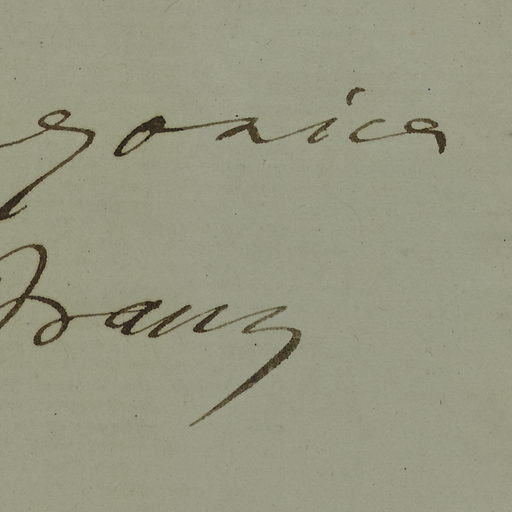 gonica
Franz